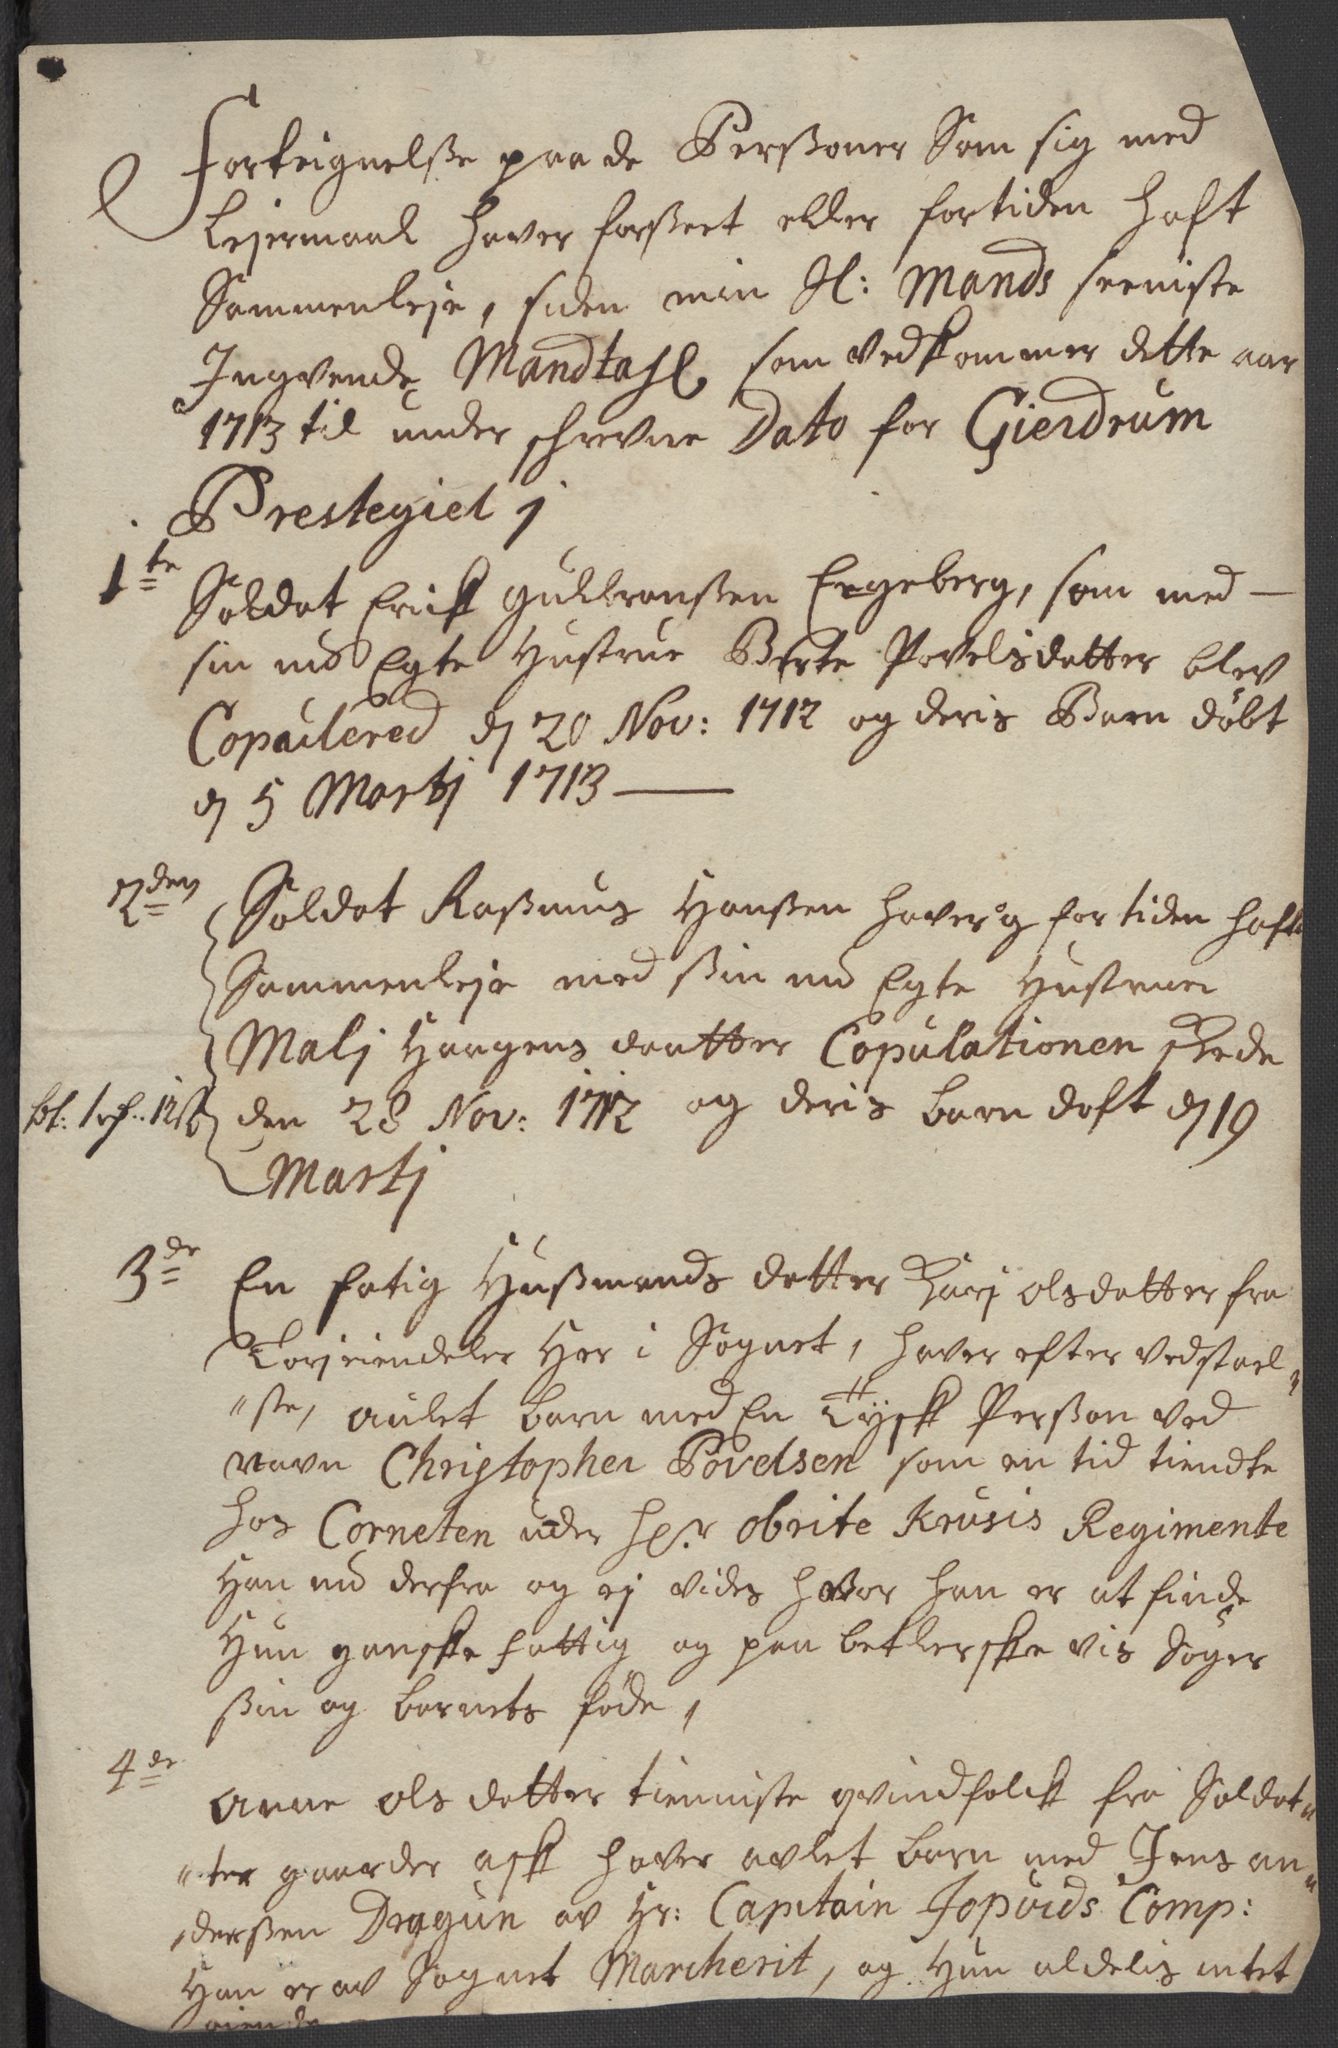 Forteignelsse paa de Perssoner Som sig med
Lejermaal haver forsseet eller fortiden haft
Sammenleje, siden min Sl: Mands seeniste
Ingivende Mandtahl som vedkommer dette aar
1713 til under schrevne Dato for Gierdrum
Prestegiel j
1te Soldat Erick Gulbranssen Engeberg, som med
sin nu Egte Hustrue Berte Povelsdatter blev
Copulered d 20 Nov: 1712 og deris Barn döbt
d 5 Martj 1713
2den Soldat Rassmus Hanssen haver og fortiden haft
Sammenleje med ssin nu Egte Hustrue
Malj Haagens daatter Copulationen skede
bt: 1 rf. 12 s den 28 Nov: 1712 og deris barn döft d 19
Martj
3de En fatig Hussmands datter Karj Olsdatter fra
her i Sognet, haver efter vedstael
"sse, aulet barn med En Tÿsk Persson ved
navn Christopher Povelsen som en tid tiendte
hos Corneten under Hr. Obriste Krusis Regimente
Han nu derfra og ej vides hvor han er at finde
Hun gansche fattig og paa betlerske vis Söger
ssin og barnets föde,
4de Anne Olsdatter tienniste qvindfolck fra Soldat"
"ter gaarder Ask haver avlet barn med Jens An"
"derssen Dragun av Hr: Capitain Comp:
Han er av Sognet Marcherit, og Hun aldelis intet
eiende